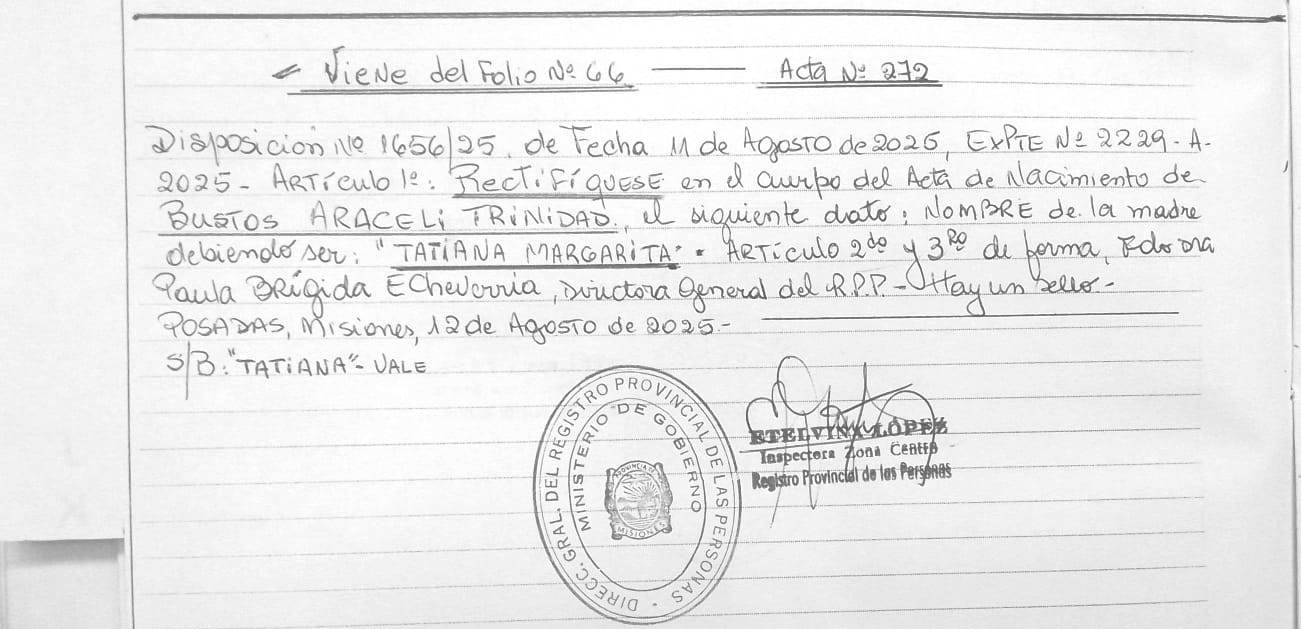 Viene del Folio Nº 66 ——— Acta Nº 272
Disposición Nº 1656/25. de Fecha 11 de Agosto de 2025, EXPTE Nº 2229-A-
2025- ARTículo 1º: RECTiFÍQUESE en el cuerpo del Acta de Nacimiento de
BUSTOS ARACELi TRiNiDAD, el siguiente dato: NOMBRE de la madre
debiendo ser: "TATiANA MARGARiTA". ARTículo 2do y 3Ro de forma, Fdo Dra
Paula BRígida ECheverría, Directora General del R.P.P.- Hay un sello.-
POSADAS, Misiones, 12 de Agosto de 2025.-
S/B: "TATiANA"- VALE
DIRECC. GRAL. DEL REGISTRO PROVINCIAL DE LAS PERSONAS
MINISTERIO DE GOBIERNO
PROVINCIA DE
MISIONES
ETELVINA LÓPEZ
Inspectora Zona Centro
Registro Provincial de las Personas